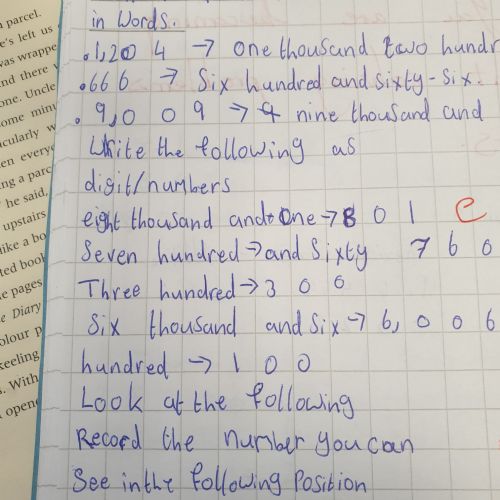 n parcel.
e's left us
was wrappe
nd there w
one. Uncle
ome minu
cularly w
en everyo
ng a parc
he said,
upstairs
like a bo
ted book
e pages
e Diary
olour p
keeling
s. With
opene
in Words.
.1,204 → One thousand two hundr
.666 → Six hundred and sixty-six.
.9,009 → nine thousand and
Write the following as
digit/numbers
eight thousand and one → 801 C
Seven hundred → and Sixty 760
Three hundred → 300
Six thousand and Six → 6,006
hundred → 100
Look at the following
Record the number you can
See in the following Position